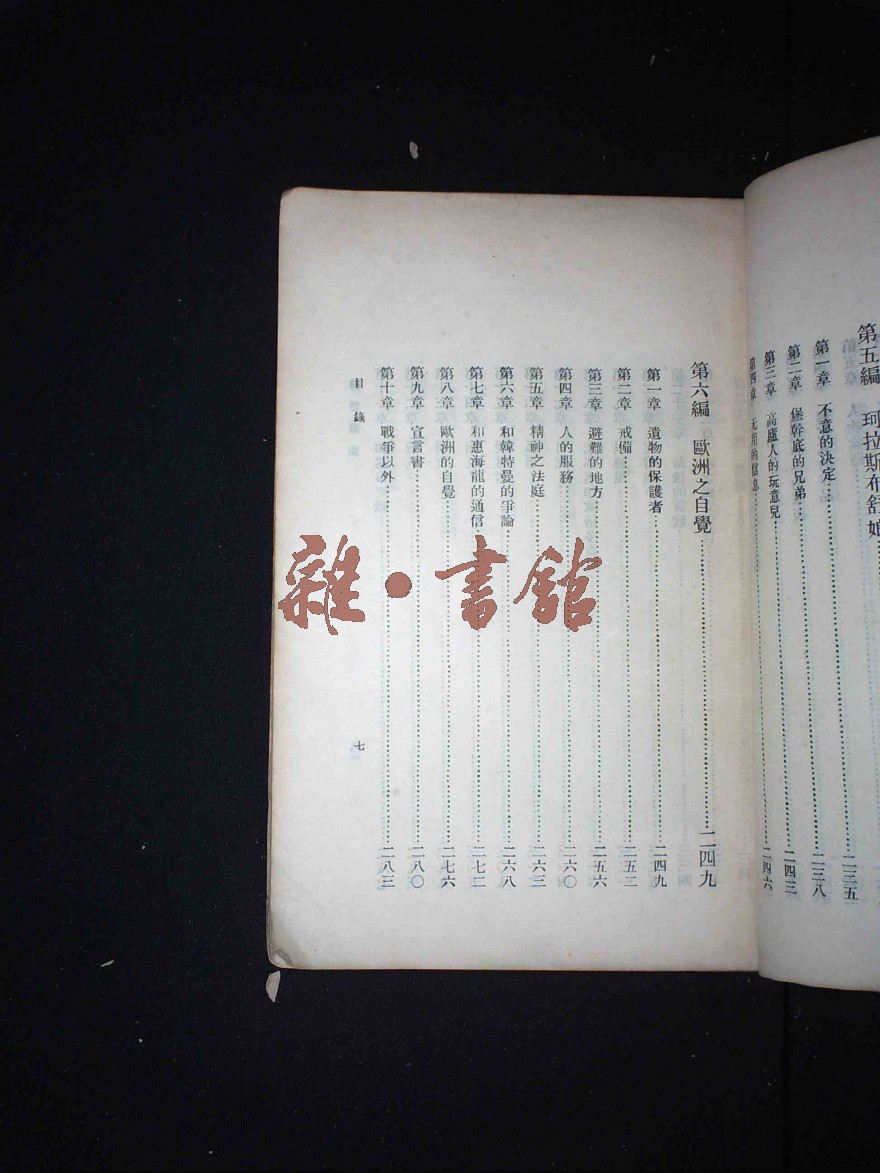 第五編 珂拉斯布舒娘
第一章 不意的決定 二三五
第二章 堡幹底的兄弟 二三八
第三章 高廬人的玩意兒 二四三
第四章 无用的信息 二四六
第六編 歐洲之自覺 二四九
第一章 遺物的保護者 二四九
第二章 戒備 二五二
第三章 避難的地方 二五六
第四章 人的服務 二六〇
第五章 精神之法庭 二六三
第六章 和韓特曼的爭論 二六八
第七章 和惠海龍的通信 二七二
第八章 歐洲的自覺 二七六
第九章 宣言書 二八〇
第十章 戰爭以外 二八三
目錄
七
雜·書館